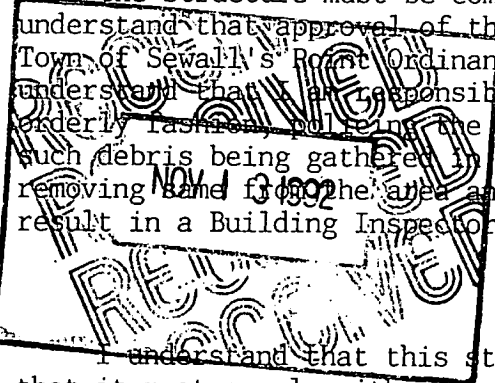 understand that approval of th
Town of Sewall's Point Ordinan
understand that I am responsib
orderly fashion, policing the
such debris being gathered in
removing same from the area an
result in a Building Inspector
RECEIVED
NOV 13 1992
RECEIVED
I understand that this st